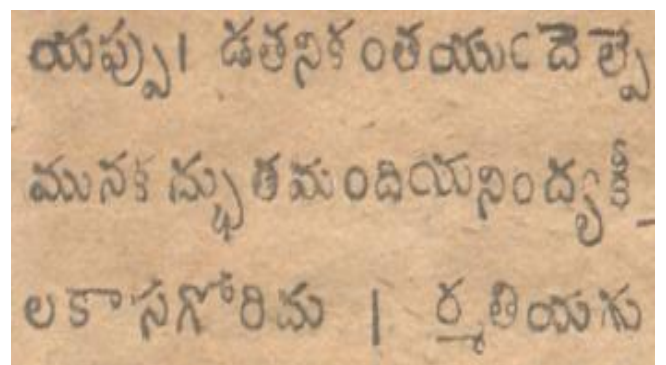 యప్పు। డతనికంతయుఁ దెల్పె
మునకద్భుతమందియనింద్యకీ
లకాసగోరిచు | ర్మతియగు